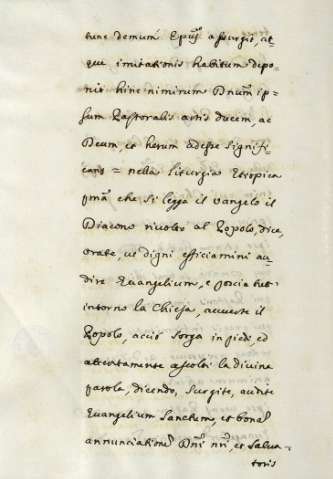 tunc demum Epus assurgit, at
que imitationis habitum depo
nit hinc nimirum Dnum ip=
sum Pastoralis artis ducem, ac
Deum, et herum adesse signifi-
cans = nella liturgia Etiopica
pma che si legga il vangelo il
Diacono rivolto al Popolo, dice,
orate, ut digni efficiamini au-
dire Evangelium, e poscia
intorno la Chiesa, avverte il
Popolo, acciò sorga in piedi, ed
attentamente ascolti la divina
parola, dicendo, Surgite, audite
Evangelium Sanctum, et bona
annunciatione Dni nri, et Salva-
toris